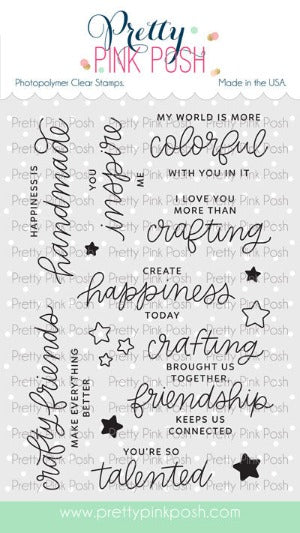 Pretty
PINK POSH
Photopolymer Clear Stamps.
Made in the USA.
HAPPINESS IS
handmade
YOU
inspire
ME
MY WORLD IS MORE
colorful
WITH YOU IN IT
I LOVE YOU
MORE THAN
crafting
CREATE
happiness
TODAY
crafty friends
MAKE EVERYTHING
BETTER
crafting
BROUGHT US
TOGETHER,
friendship
KEEPS US
CONNECTED
YOU'RE SO
talented
Pretty Pink Posh
www.prettypinkposh.com